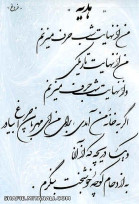 فروغ
هدیه
من از نهایت شب حرف میزنم
من از نهایت تاریکی
و از نهایت شب حرف میزنم
اگر به خانه من آمدی برای من ای مهربان چراغ بیاور
و یک دریچه که از آن
به ازدحام کوچه خوشبخت بنگرم